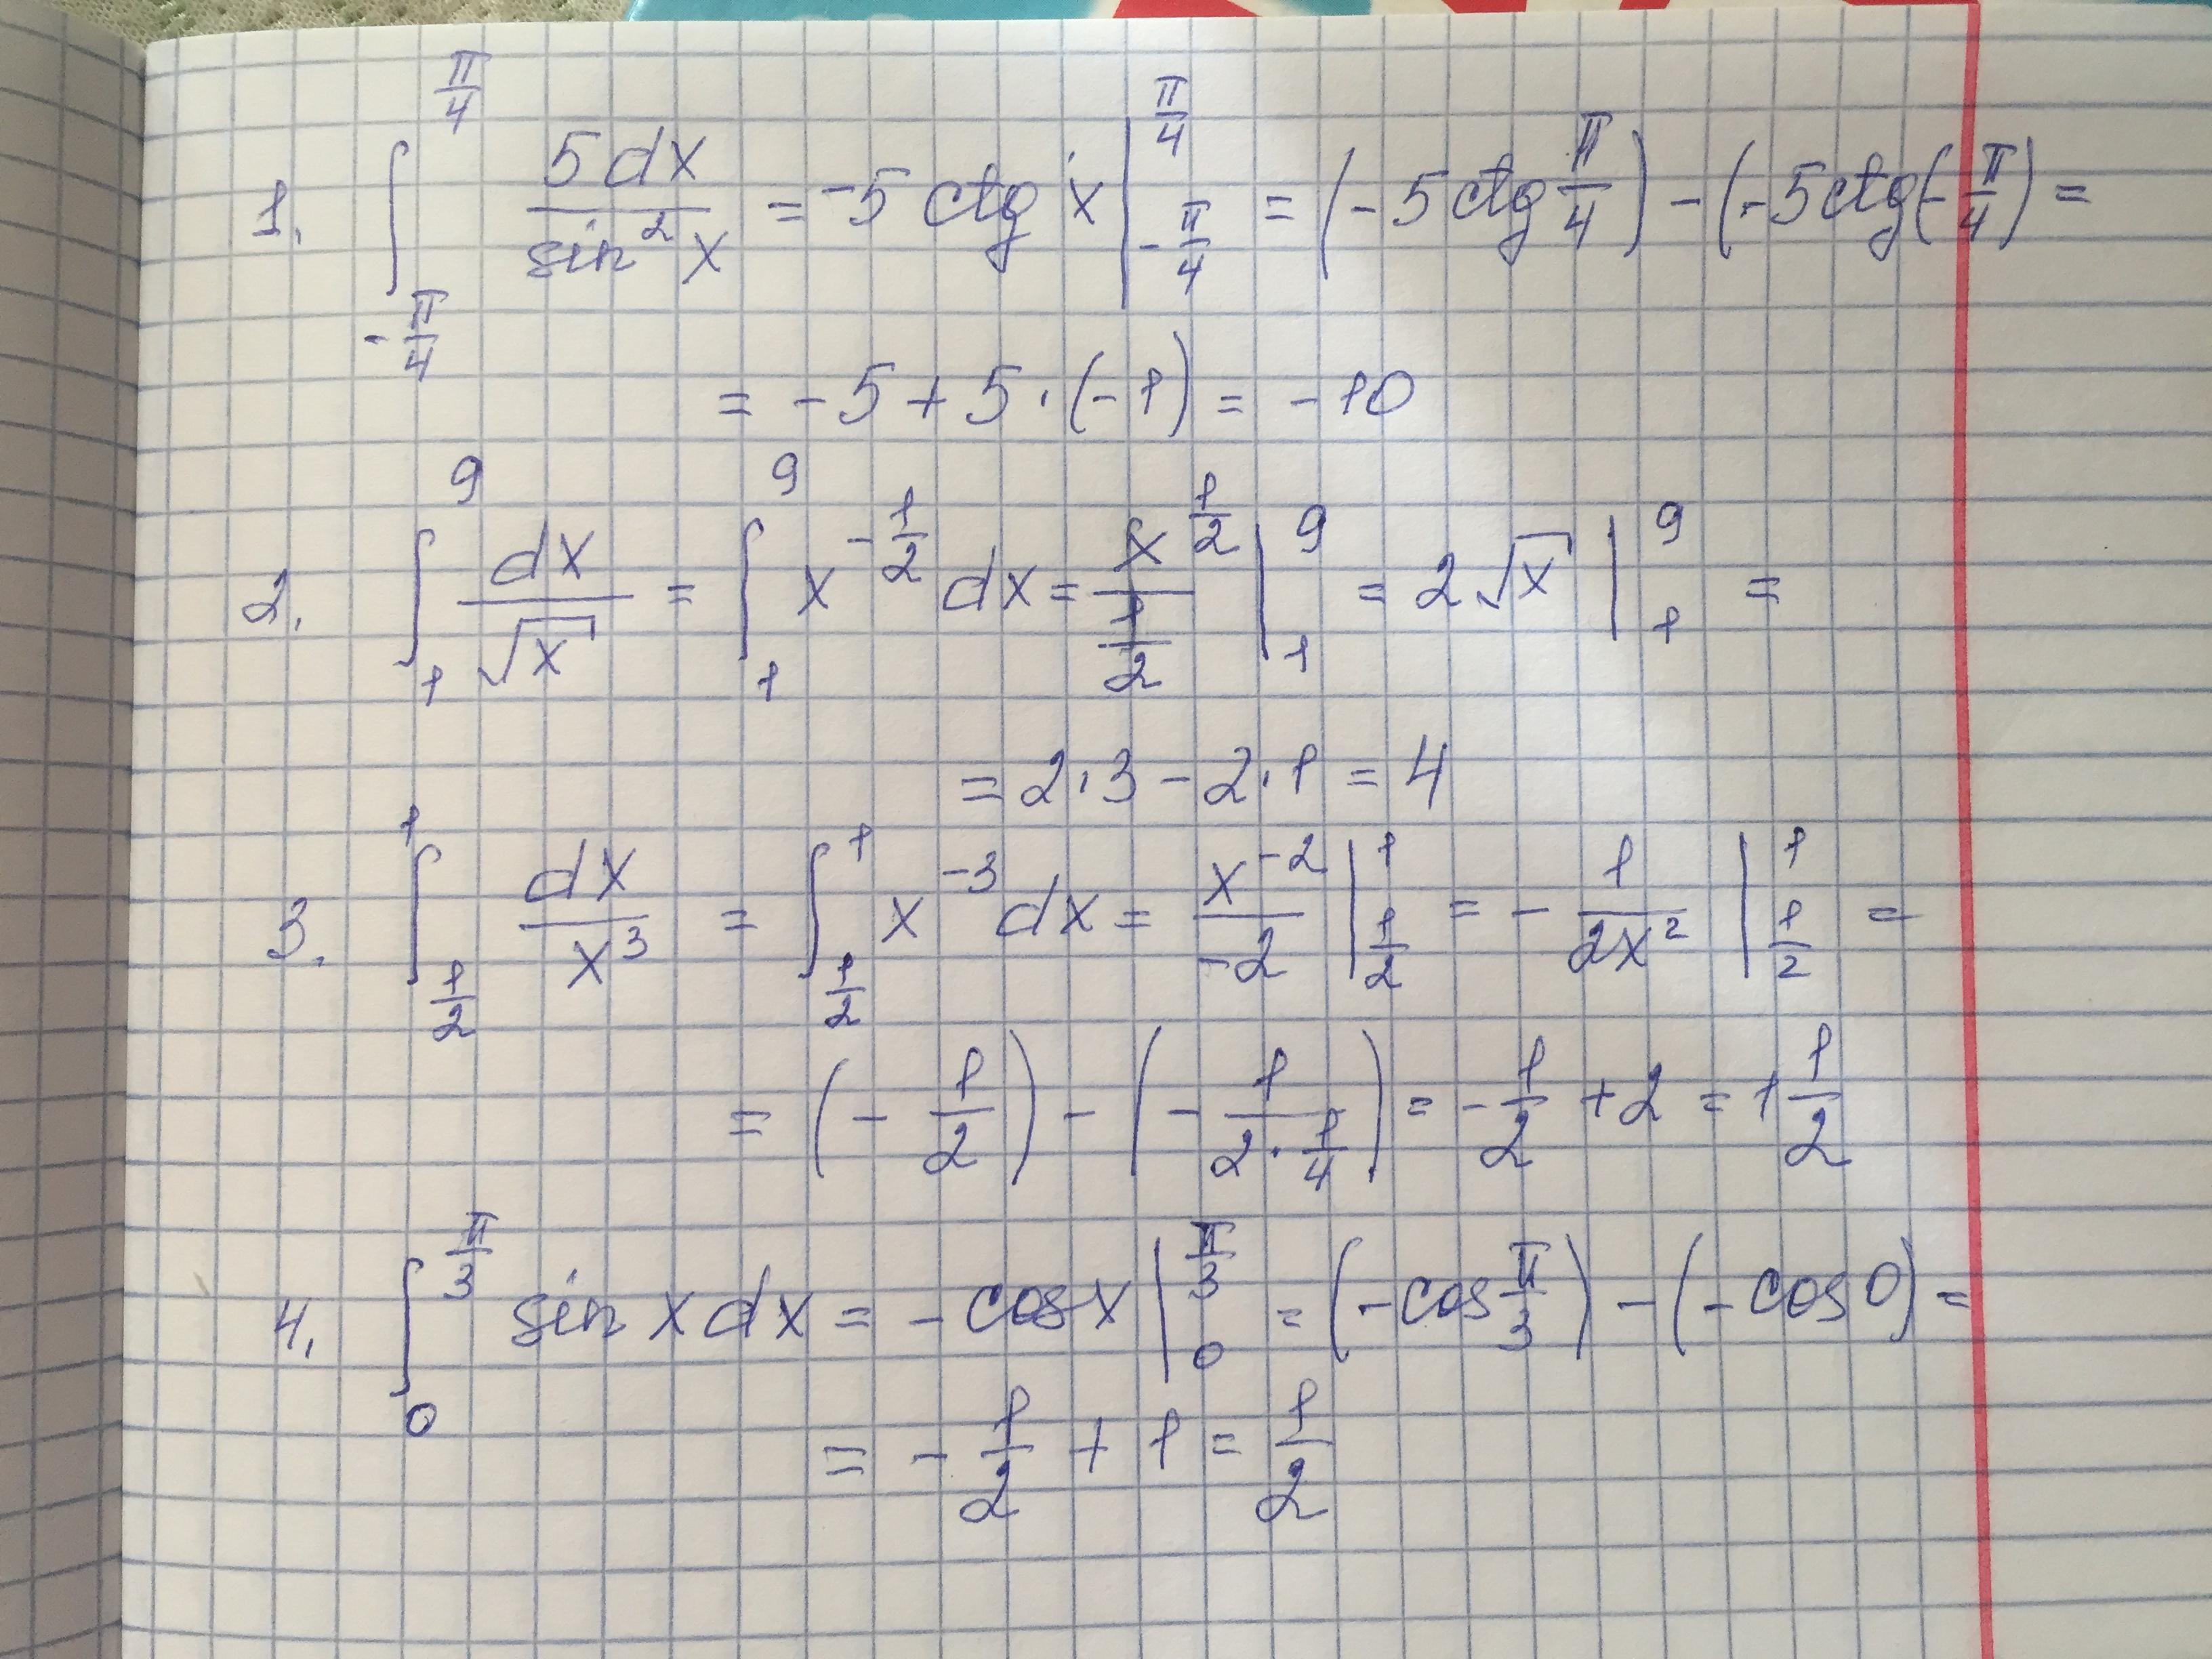 1. ∫_{-π/4}^{π/4} 5dx/sin²x = -5 ctg x |_{-π/4}^{π/4} = (-5ctg π/4) - (-5ctg(-π/4) =
= -5 + 5·(-1) = -10
2. ∫_1^9 dx/√x = ∫_1^9 x^{-1/2} dx = x^{1/2}/(1/2) |_1^9 = 2√x |_1^9 =
= 2·3 - 2·1 = 4
3. ∫_{1/2}^1 dx/x³ = ∫_{1/2}^1 x^{-3} dx = x^{-2}/-2 |_{1/2}^1 = - 1/2x² |_{1/2}^1 =
= (- 1/2) - (- 1/(2·1/4)) = - 1/2 + 2 = 1 1/2
4. ∫_0^{π/3} sin x dx = - cos x |_0^{π/3} = (-cos π/3) - (-cos 0) =
= - 1/2 + 1 = 1/2